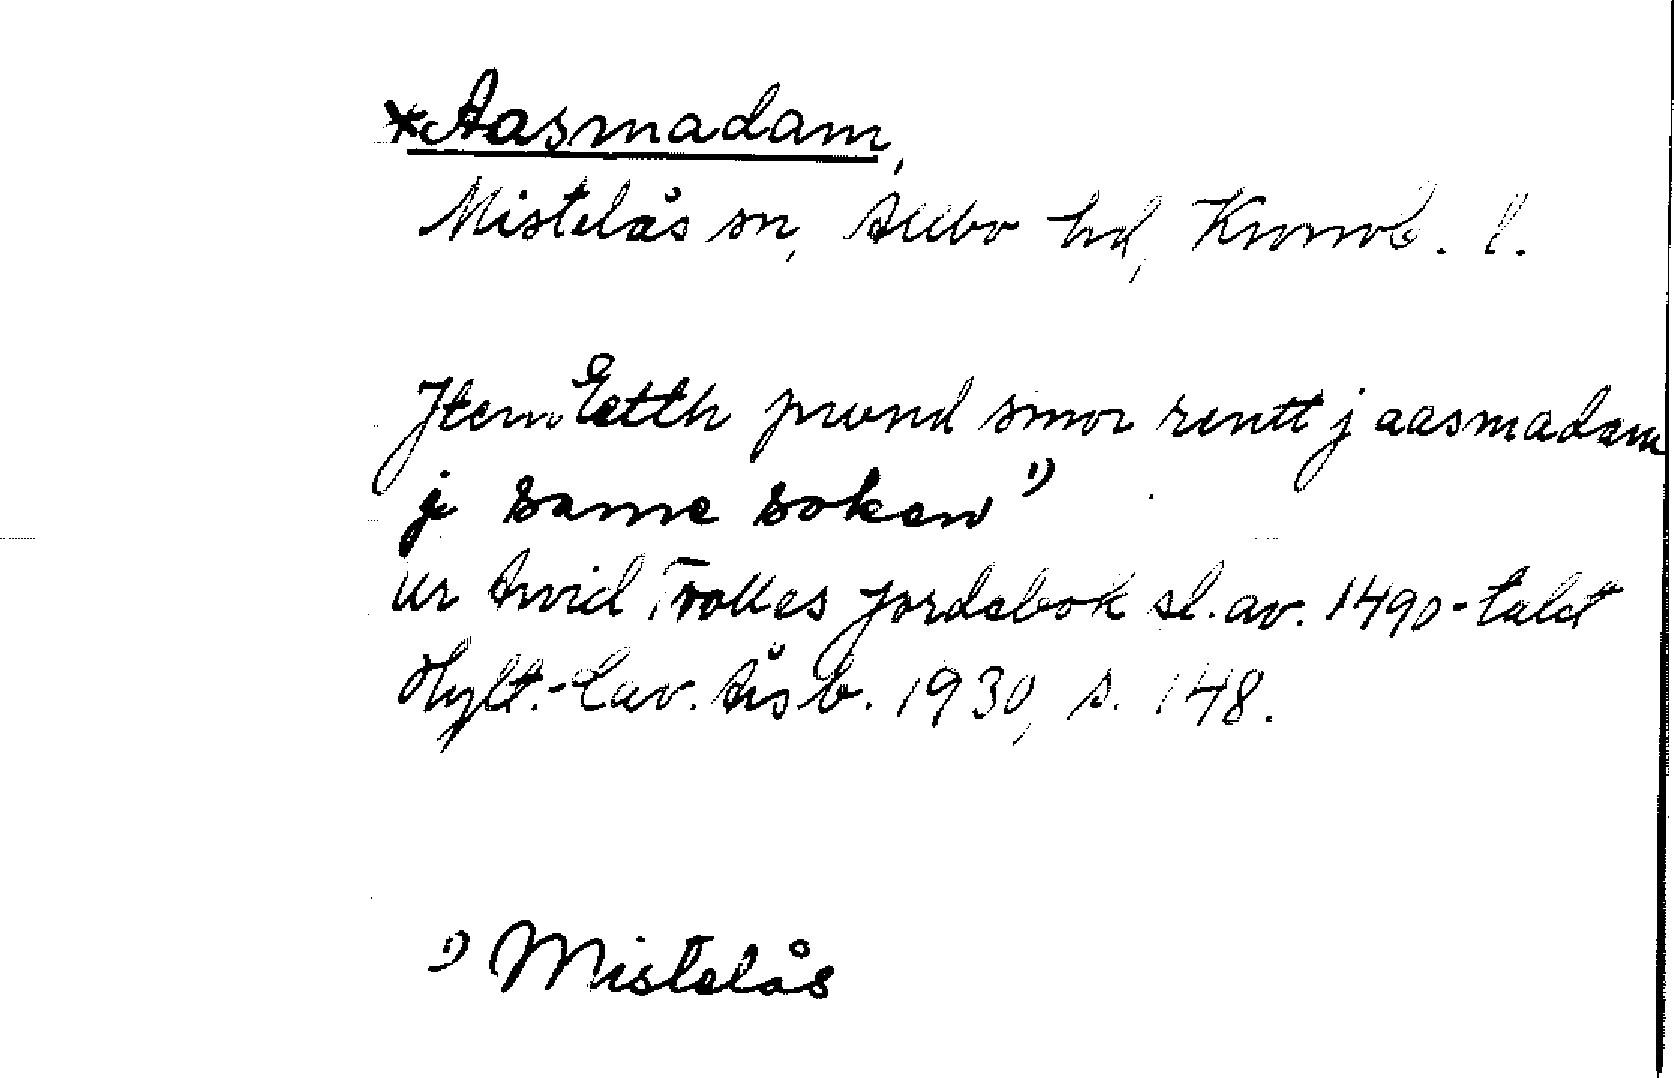 *Aasmadam,
Mistelås sn, Allbo hd, Kronob. l.
Jtem Eetth pund smor rentt j aasmadam
j same soken 1)
ur Arvid Trolles jordebok sl. av. 1490-talet
Hylt.-Cav. Åsb. 1930, s. 148.
1) Mistelås